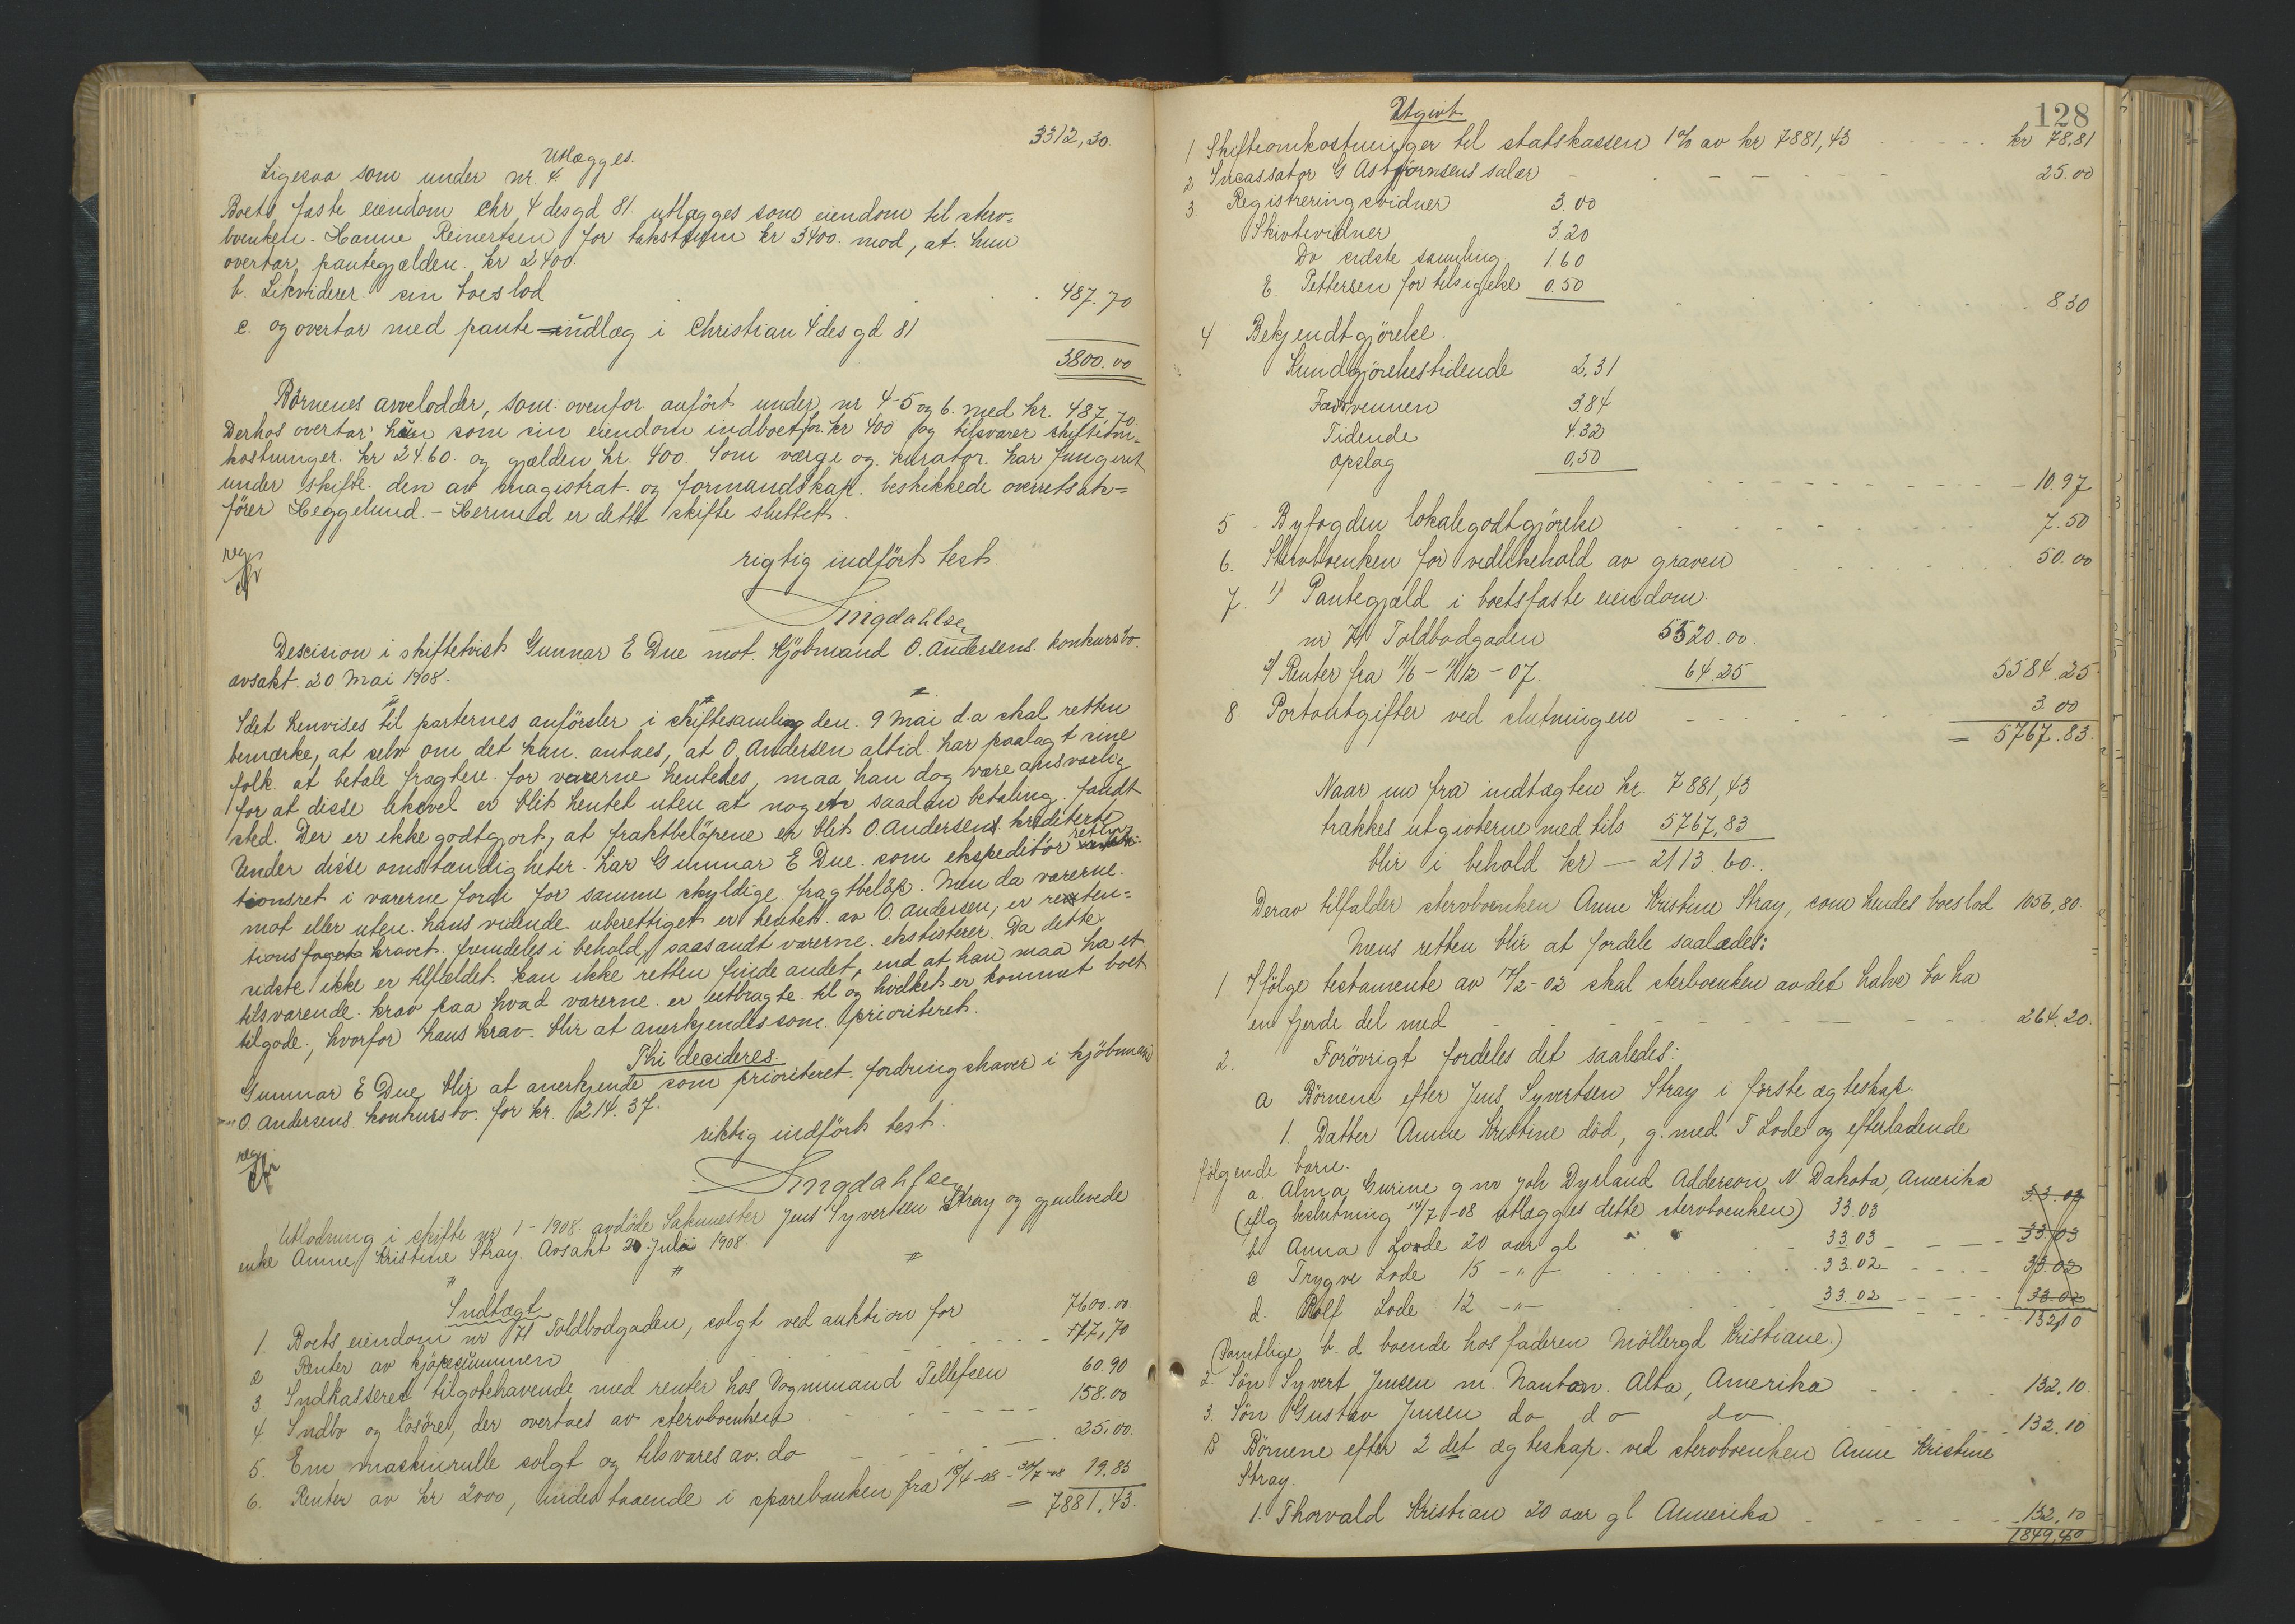 3312,30.
Utlægges.
Ligesaa som under nr. 4.
Boets faste eiendom Chr 4 des gd 81. utlægges som eiendom til sterv=
boenken. Hanne Reinertsen for takstsum kr 3400. mod, at hun
overtar pantegjælden. kr 2400.
b. Likviderer sin boeslod . . . . 487.70
c. og overtar med pante indlæg i Christian 4 des gd 81
3800.00
Börnenes arvelodder, som ovenfor anfört under nr 4-5 og 6. med kr. 487,70.
Derhos overtar hun som sin eiendom indboet for kr 400 og tilsvarer skifteom=
kostninger. kr 24.60. og gjælden kr. 400. Som værge og kurator. har fungert
under skifte den av magistrat og formandskap. beskikkede overretssak=
förer Heggelund. - Hermed er dette skifte sluttet.
reg
rigtig indfört test.
Lingdahlsen
Descision i skiftetvist Gunnar E Due mot. Kjöbmand O. Andersens. konkursbo.
avsakt. 20 Mai 1908.
Idet henvises til parternes anförsler i skiftesamling den. 9 Mai d.a skal retten
bemærke, at selv om det kan antaes, at O. Andersen altid har paalagt sine
folk. at betale fragten for varerne hentedes, maa han dog være ansvarlig
for at disse likevel er blit hentet uten at nogen saadan betaling. fandt
sted. Der er ikke godtgjort, at fraktbelöpene er blit O. Andersens krediterte
Under disse omstændigheter. har Gunnar E Due. som ekspeditör reten-
tionsret i varerne fordi for samme skyldige fragtbelöp. Men da varerne.
mot eller uten hans vidende uberettiget er hentet. av O. Andersen, er reten=
tions kravet. fremdeles i behold, saasandt varerne. ekstisterer. Da dette
sidste ikke er tilfældet. kan ikke retten finde andet, end at han, maa ha et
tilsvarende. krav paa hvad varerne. er utbragte. til og hvilket er kommet boet
tilgode., hvorfor hans krav. blir at anerkjendes som prioriteret.
Thi decideres.
Gunnar E Due blir at anerkjende som prioriteret. fordringshaver i kjöbmand
O. Andersens. konkursbo. for kr. 214. 37.
riktig indfört test.
reg
Lingdahlsen
Utlodning i skifte nr 1-1908. avdöde Lakmester Jens Syvertsen Stray og gjenlevede
enke Anne Kristine Stray. Avsakt 20 Juli 1908.
Indtægt
1. Boets eiendom nr 71 Toldbodgaden, solgt ved auktion for 7600.00.
2 Renter av kjöpesummen . . . 17,70
3 Indkasseret tilgotehavende med renter hos Vognmand Tellefsen 60.90
4 Indbo og lösöre, der overtaes av stervboenken 158.00
5. En maskinrulle solgt og tilsvares av. do 25.00.
6. Renter av kr 2000, indestaaende i sparebanken fra 18/4-08 - 20/7-08 19.83
= 7881.43.
128
Utgivt
1 Skifteomkostninger til statskassen 1% av kr 7881,43 kr 78,81
2 Incassator G Astbjörnsens salær 25.00
3 Registreringsvidner 3.00
Skiftevidner 3.20
Do sidste samling 1.60
E. Pettersen for tilsigelse 0.50 8.30
4 Bekjendtgjörelse.
Kundgjörelsestidende 2,31
Fædrevennen 3.84
Tidende 4.32
Opslag 0,50 10.97
5 Byfogden lokalegodtgjörelse 7.50
6. Stervboenken for vedlikehold av graven 50.00
7. 1/ Pantegjæld i boets faste eiendom.
nr 71 Toldbodgaden 5520.00.
2/ Renter fra 11/6 - 11/12 - 07. 64.25 5584.25
8. Portoutgifter ved slutningen 3.00
= 5767.83.
Naar nu fra indtægten kr. 7881,43
trækkes utgivterne med tils 5767,83
blir i behold kr - 2113.60.
Derav tilfalder stervboenken Anne Kristine Stray, som hendes boeslod 1056,80.
Mens retten blir at fordele saaledes:
1 Ifölge testamente av 17/2-02 skal sterboenken av det halve bo ha
en fjerde del med 264.20.
2. Forövrigt fordeles det saaledes:
a Börnene efter Jens Syvertsen Stray i förste ægteskap.
1. Datter Anne Kristine död, g. med T Lode og efterladende
fölgende barn.
a. Alma Gurine g nr Joh Dyrland Adderson, N. Dakota, Amerika 33.03
(iflg beslutning 14/7-08 utlægges dette stervboenken) 33.03
b Anna Lode 20 aar gl 33.03 33.03
c Trygve Lode 15 -"- 33.02 33.02
d. Rolf Lode 12 -"- 33.02 33.02
132,10
(Samtlige b. d boende hos faderen Möllergd Kristiane.)
2. Sön Syvert Jensen m. Nanton. Alta, Amerika 132,10.
3. Sön Gustav Jensen do do do 132.10
B Börnene efter 2 det ægteskap. ved stervboenken Anne Kristine
Stray.
1. Thorvald Kristian 20 aar gl Amerika 132,10
1849,40